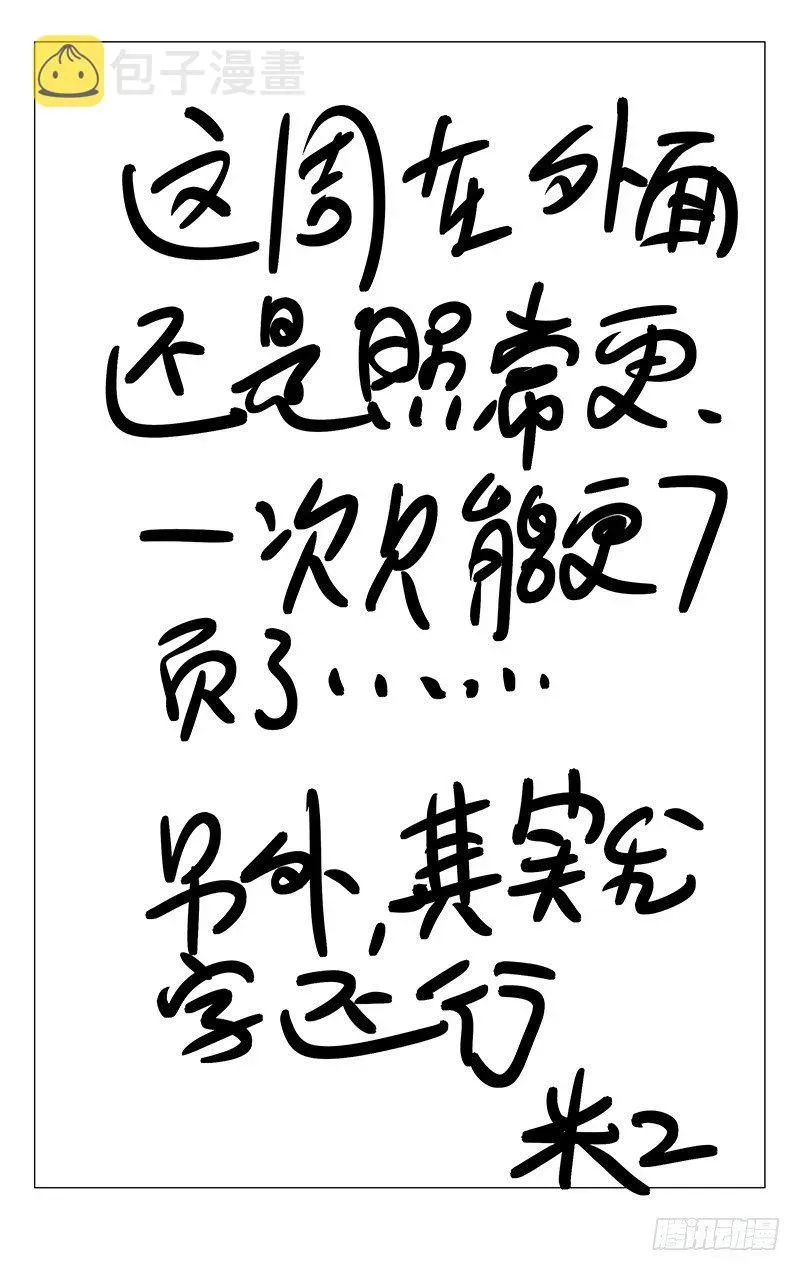 包子漫畫
这周在外面
还是照常更、
一次只能更7
页了……
另外,其实
字还行
米二
腾讯动漫